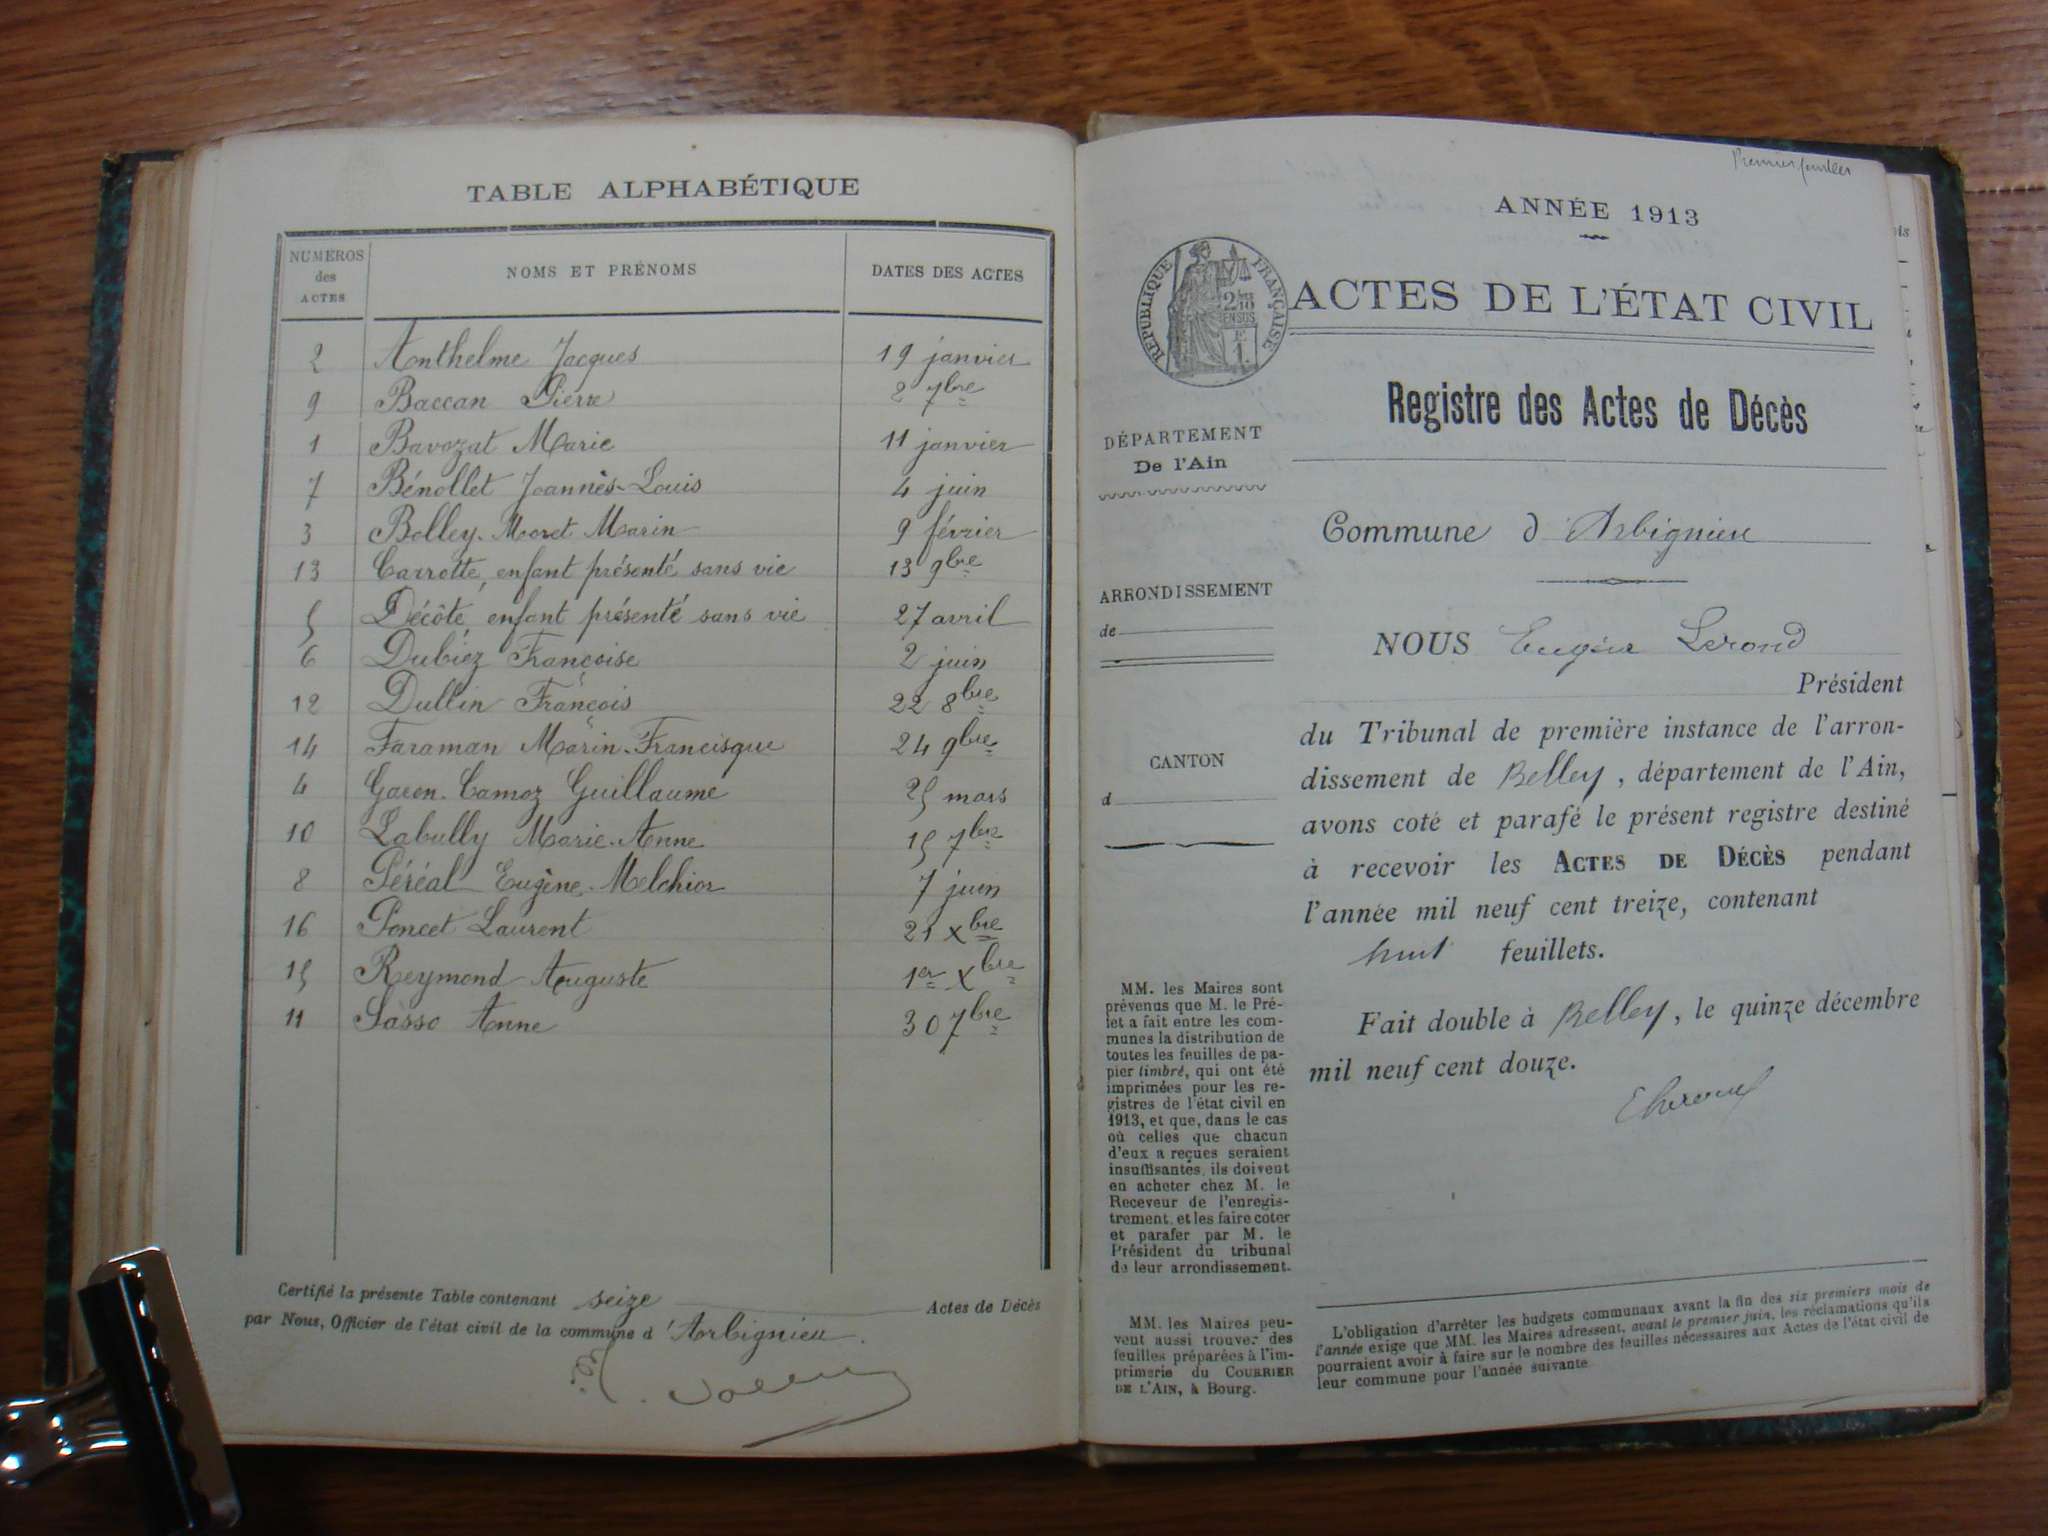 TABLE ALPHABÉTIQUE
NUMÉROS des ACTES NOMS ET PRÉNOMS DATES DES ACTES
2 Anthelme Jacques 19 janvier
9 Baccan Pierre 2 7bre
1 Bavozat Marie 11 janvier
7 Bénollet Joannès-Louis 4 juin
3 Bolley-Moret Marin 9 février
13 Carrotte, enfant présenté sans vie 13 9bre
5 Décôte, enfant présenté sans vie 27 avril
6 Dubiez Françoise 2 juin
12 Dullin François 22 8bre
14 Faraman Marin-Francisque 24 9bre
4 Guillaume 25 mars
10 Labully Marie-Anne 15 7bre
8 Péréal Eugène-Melchior 7 juin
16 Poncet Laurent 21 Xbre
15 Reymond Auguste 1er Xbre
11 Sasso Anne 30 7bre
Certifié la présente Table contenant seize Actes de Décès
par Nous, Officier de l'état civil de la commune d'Arbignieu
Premier feuillet
ANNÉE 1913
RÉPUBLIQUE FRANÇAISE
ACTES DE L'ÉTAT CIVIL
Registre des Actes de Décès
DÉPARTEMENT
De l'Ain
Commune d'Arbignieu
ARRONDISSEMENT
de
CANTON
d
NOUS Eugène Lerond
Président
du Tribunal de première instance de l'arron-
dissement de Belley, département de l'Ain,
avons coté et parafé le présent registre destiné
à recevoir les ACTES DE DÉCÈS pendant
l'année mil neuf cent treize, contenant
huit feuillets.
Fait double à Belley, le quinze décembre
mil neuf cent douze.
MM. les Maires sont
prévenus que M. le Pré-
fet a fait entre les com-
munes la distribution de
toutes les feuilles de pa-
pier timbré, qui ont été
imprimées pour les re-
gistres de l'état civil en
1913, et que, dans le cas
où celles que chacun
d'eux a reçues seraient
insuffisantes, ils doivent
en acheter chez M. le
Receveur de l'enregis-
trement, et les faire coter
et parafer par M. le
Président du tribunal
de leur arrondissement.
MM. les Maires peu-
vent aussi trouver des
feuilles préparées à l'im-
primerie du COURRIER
DE L'AIN, à Bourg.
L'obligation d'arrêter les budgets communaux avant la fin des six premiers mois de
l'année exige que MM. les Maires adressent, avant le premier juin, les réclamations qu'ils
pourraient avoir à faire sur le nombre des feuilles nécessaires aux Actes de l'état civil de
leur commune pour l'année suivante